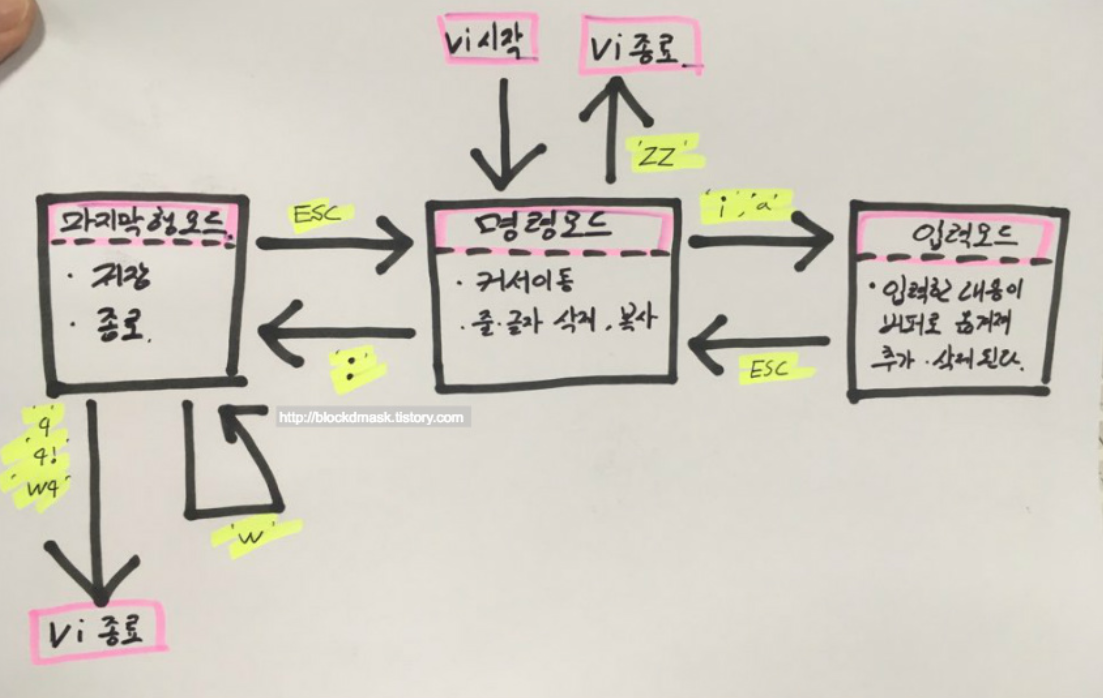 Vi 시작
Vi 종료
'ZZ'
마지막행모드
· 저장
· 종료.
ESC
:
명령모드
· 커서이동
· 줄·글자 삭제, 복사
'i', 'a'
ESC
입력모드
· 입력한 내용이
버퍼로 옮겨져
추가·삭제된다.
'q'
'q!'
'wq'
'w'
http://blockdmask.tistory.com
Vi 종료